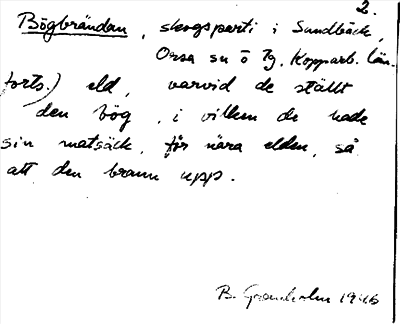 2.
Bögbrändan, skogsparti i Sundbäck,
Orsa sn o tg. Kopparb. län.
forts.) eld, varvid de ställt
den bög, i vilken de hade
sin matsäck, för nära elden, så
att den brann upp.
B. Granholm 1946